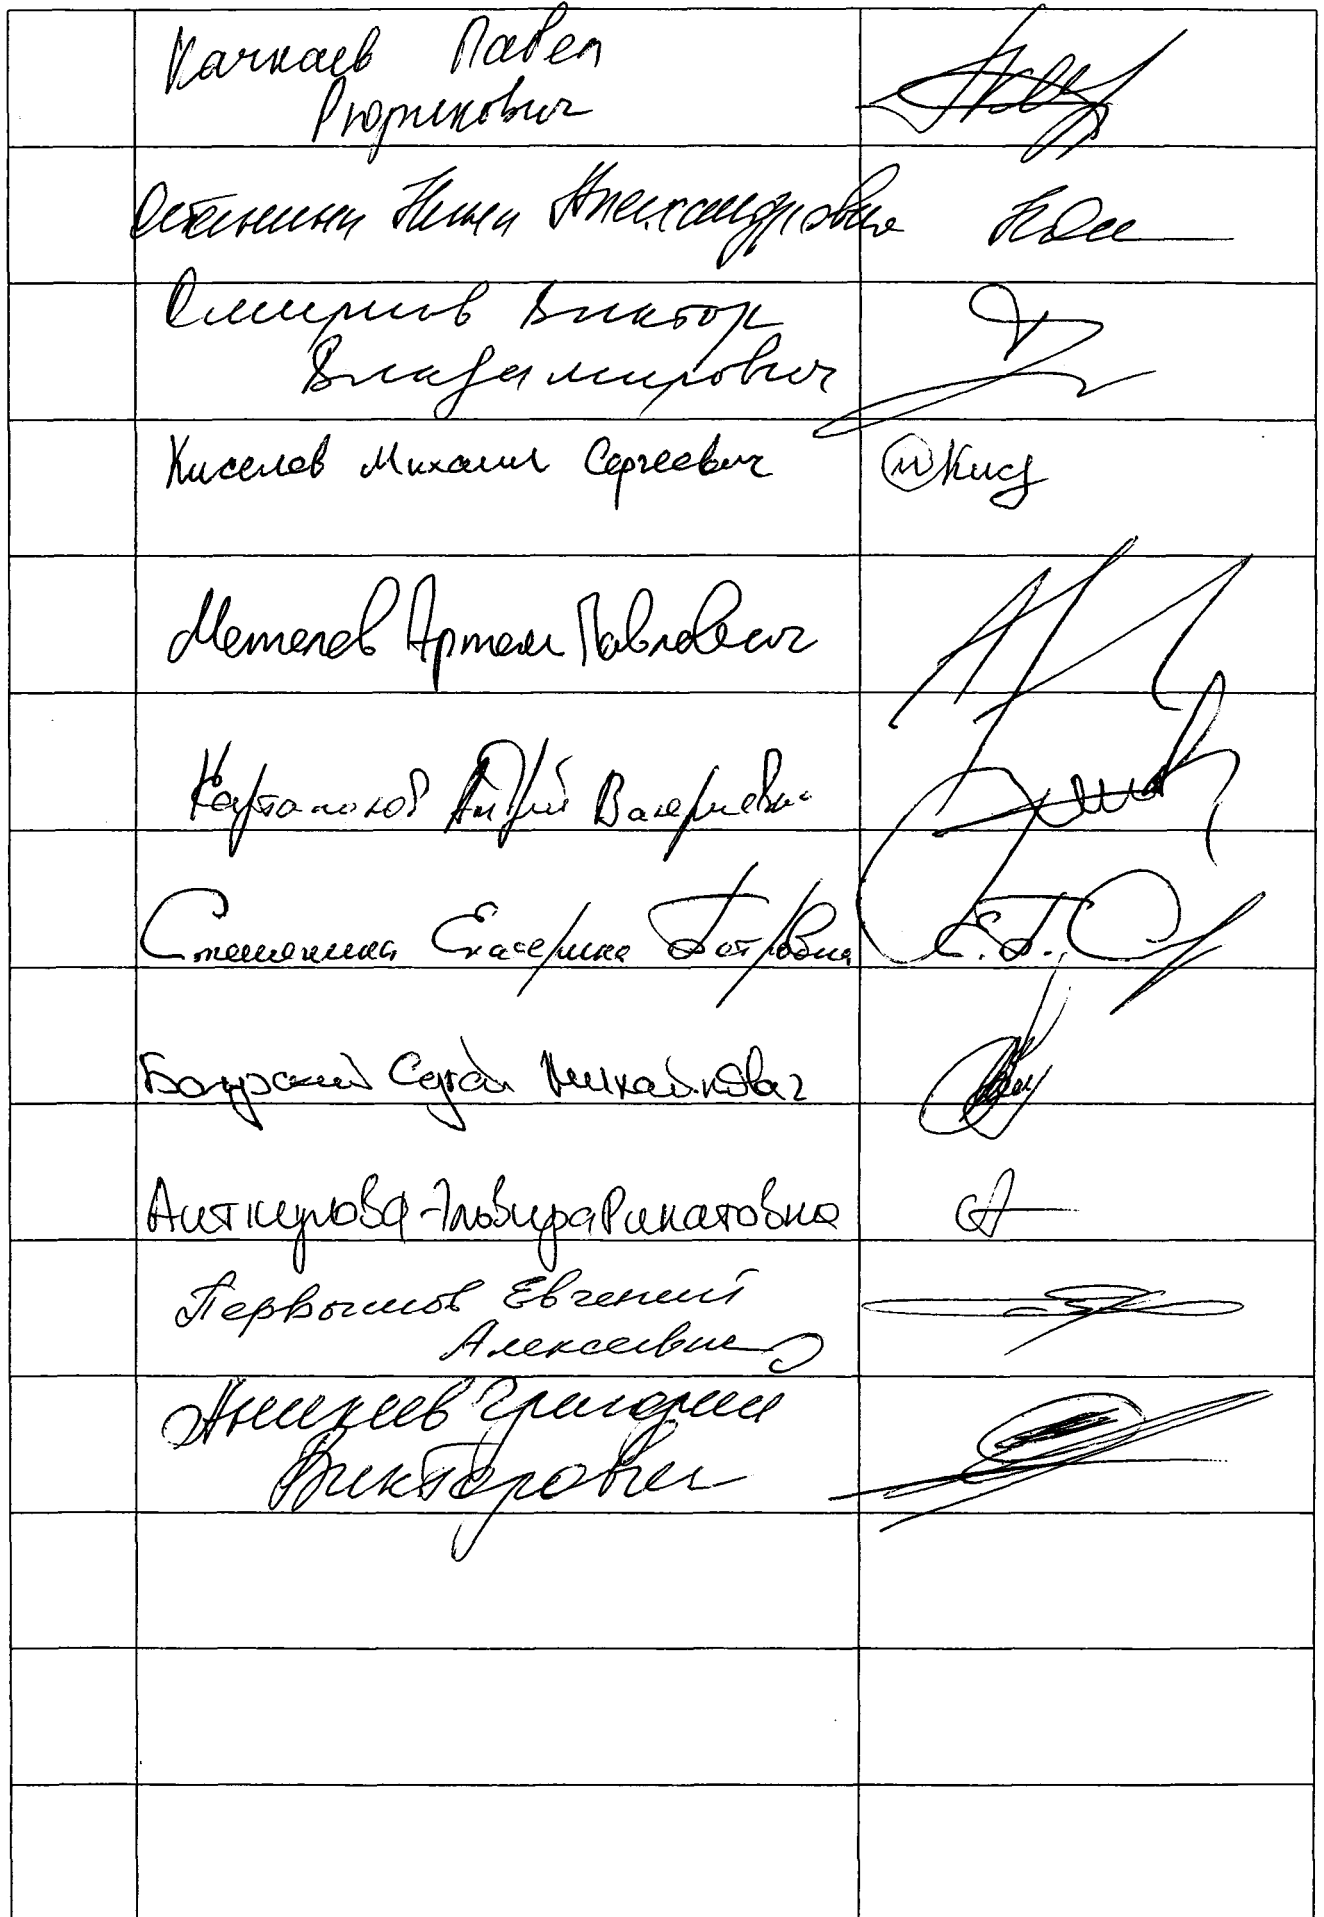 Качкаев Павел
Рюрикович
Останина Нина Александровна
Смирнов Виктор
Владимирович
Киселев Михаил Сергеевич
М Кис
Метелев Артем Павлович
Картаполов Андрей Валериевич
Стенякина Екатерина Петровна
Е.П. С
Боярский Сергей Михайлович
Аиткулова Эльвира Ринатовна
Первышов Евгений
Алексеевич
Аникеев Григорий
Викторович